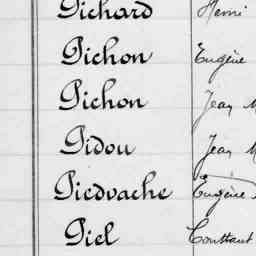 Pichard Henri
Pichon Eugène
Pichon Jean M
Pidou Jean M
Piedvache Eugène
Piel Constant